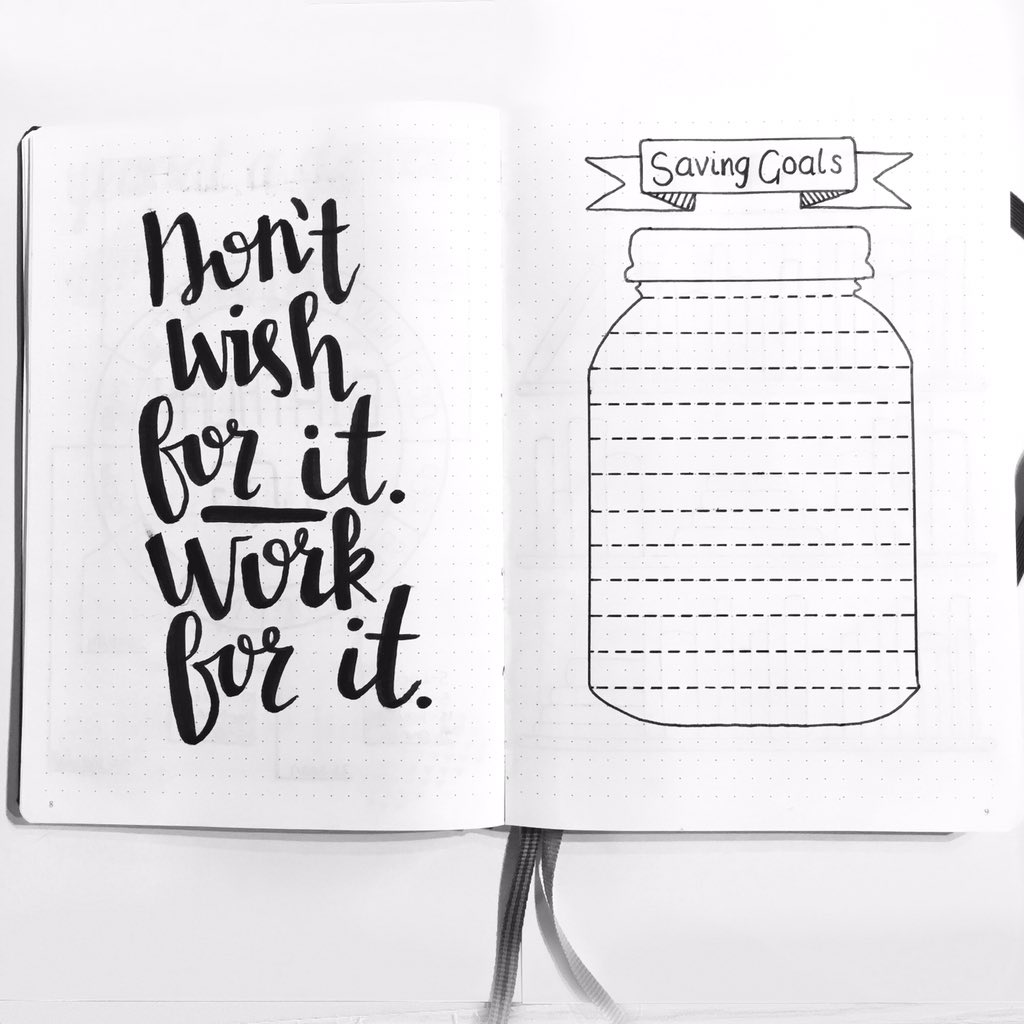 Don't
wish
for it.
Work
for it.
8
Saving Goals
9